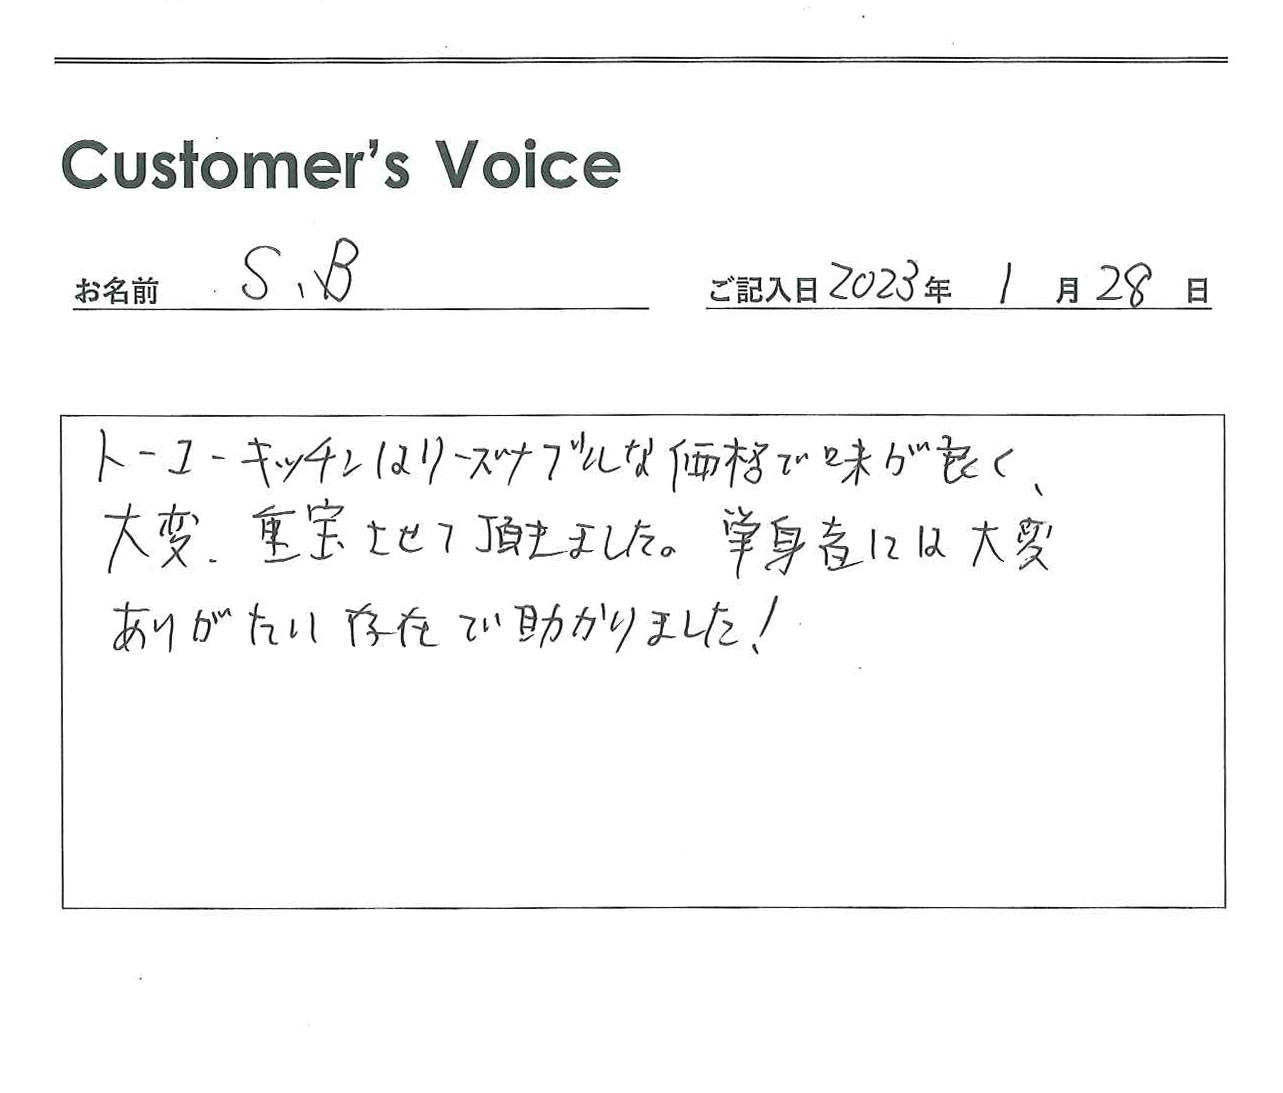 Customer's Voice
お名前 S、B ご記入日 2023年 1月 28日
トーコーキッチンはリーズナブルな価格で味が良く、
大変、重宝させて頂きました。単身者には大変
ありがたい存在で助かりました!